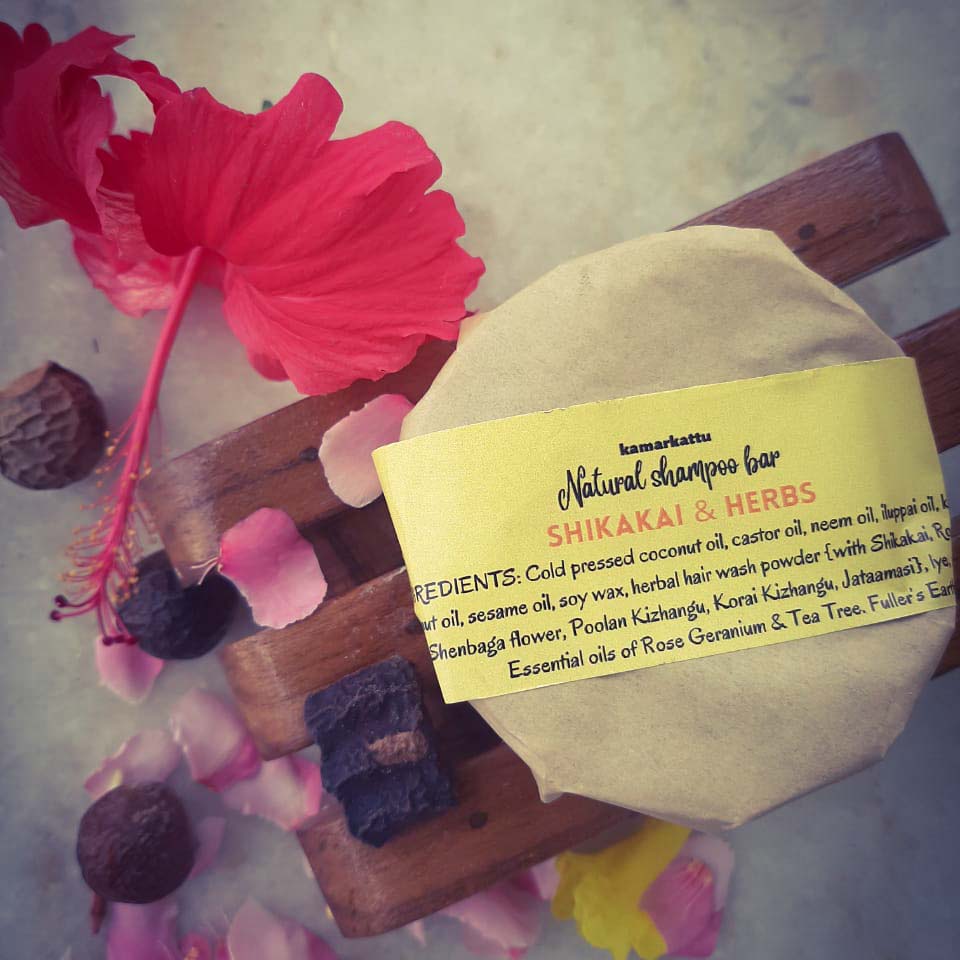 kamarkattu
Natural shampoo bar
SHIKAKAI & HERBS
REDIENTS: Cold pressed coconut oil, castor oil, neem oil, iluppai oil, k
ut oil, sesame oil, soy wax, herbal hair wash powder {with Shikakai, Ro
Shenbaga flower, Poolan Kizhangu, Korai Kizhangu, Jataamasi}, lye,
Essential oils of Rose Geranium & Tea Tree. Fuller's Eart